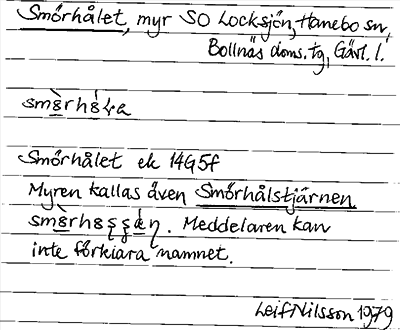 Smörhålet, myr SO Locksjön, Hanebo sn,
Bollnäs doms. tg, Gävl. l.
Smörhålet ek 14G5f
Myren kallas även Smörhålstjärnen
. Meddelaren kan
inte förklara namnet.
Leif Nilsson 1979